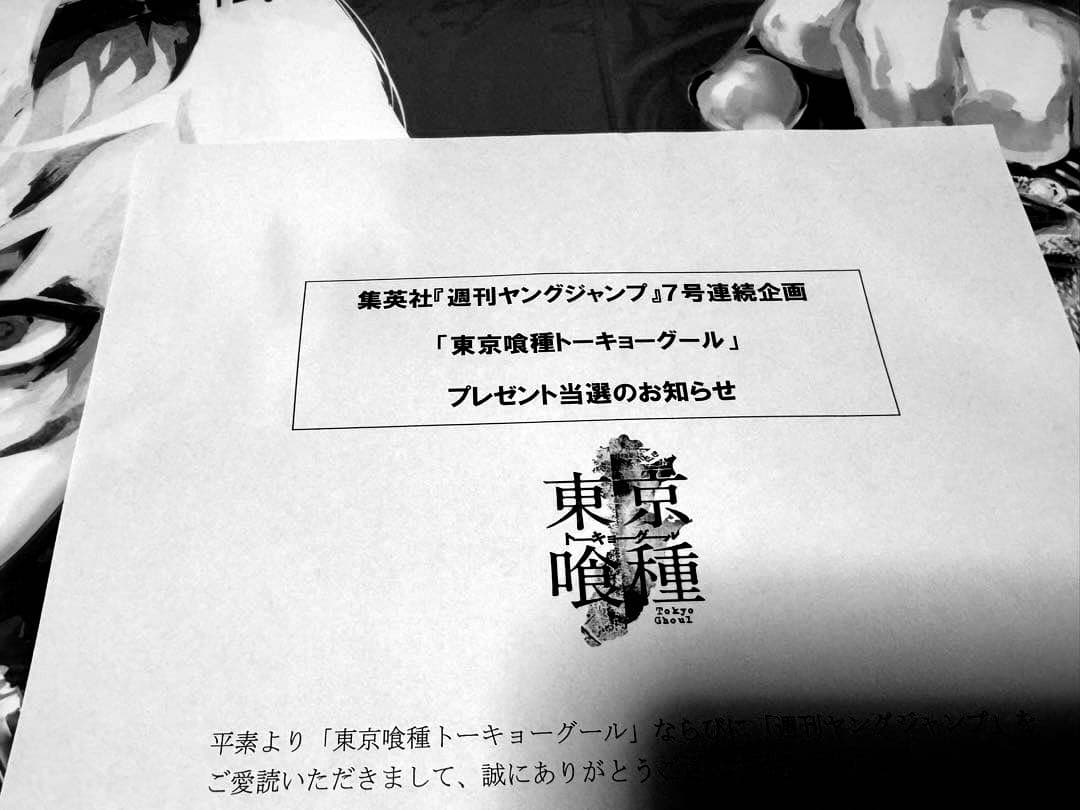 集英社『週刊ヤングジャンプ』7号連続企画
「東京喰種トーキョーグール」
プレゼント当選のお知らせ
東京
トーキョーグール
喰種
Tokyo
Ghoul
平素より「東京喰種トーキョーグール」ならびに「週刊ヤングジャンプ」を
ご愛読いただきまして、誠にありがとう